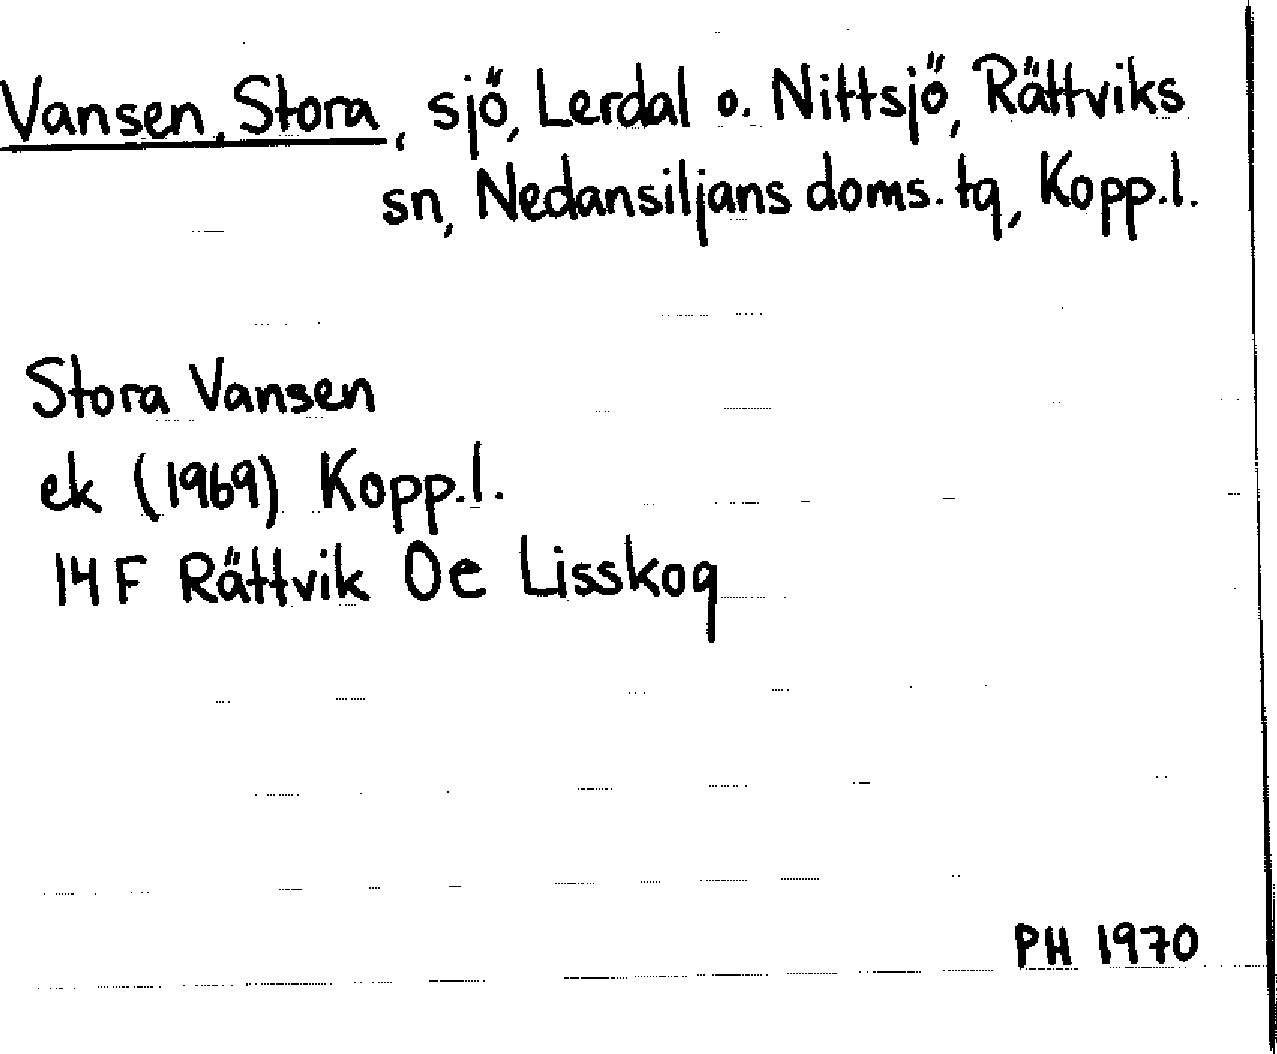 Vansen, Stora, sjö, Lerdal o. Nittsjö, Rättviks
sn, Nedansiljans doms. tg, Kopp.l.
Stora Vansen
ek (1969) Kopp.l.
14 F Rättvik 0e Lisskog
PH 1970